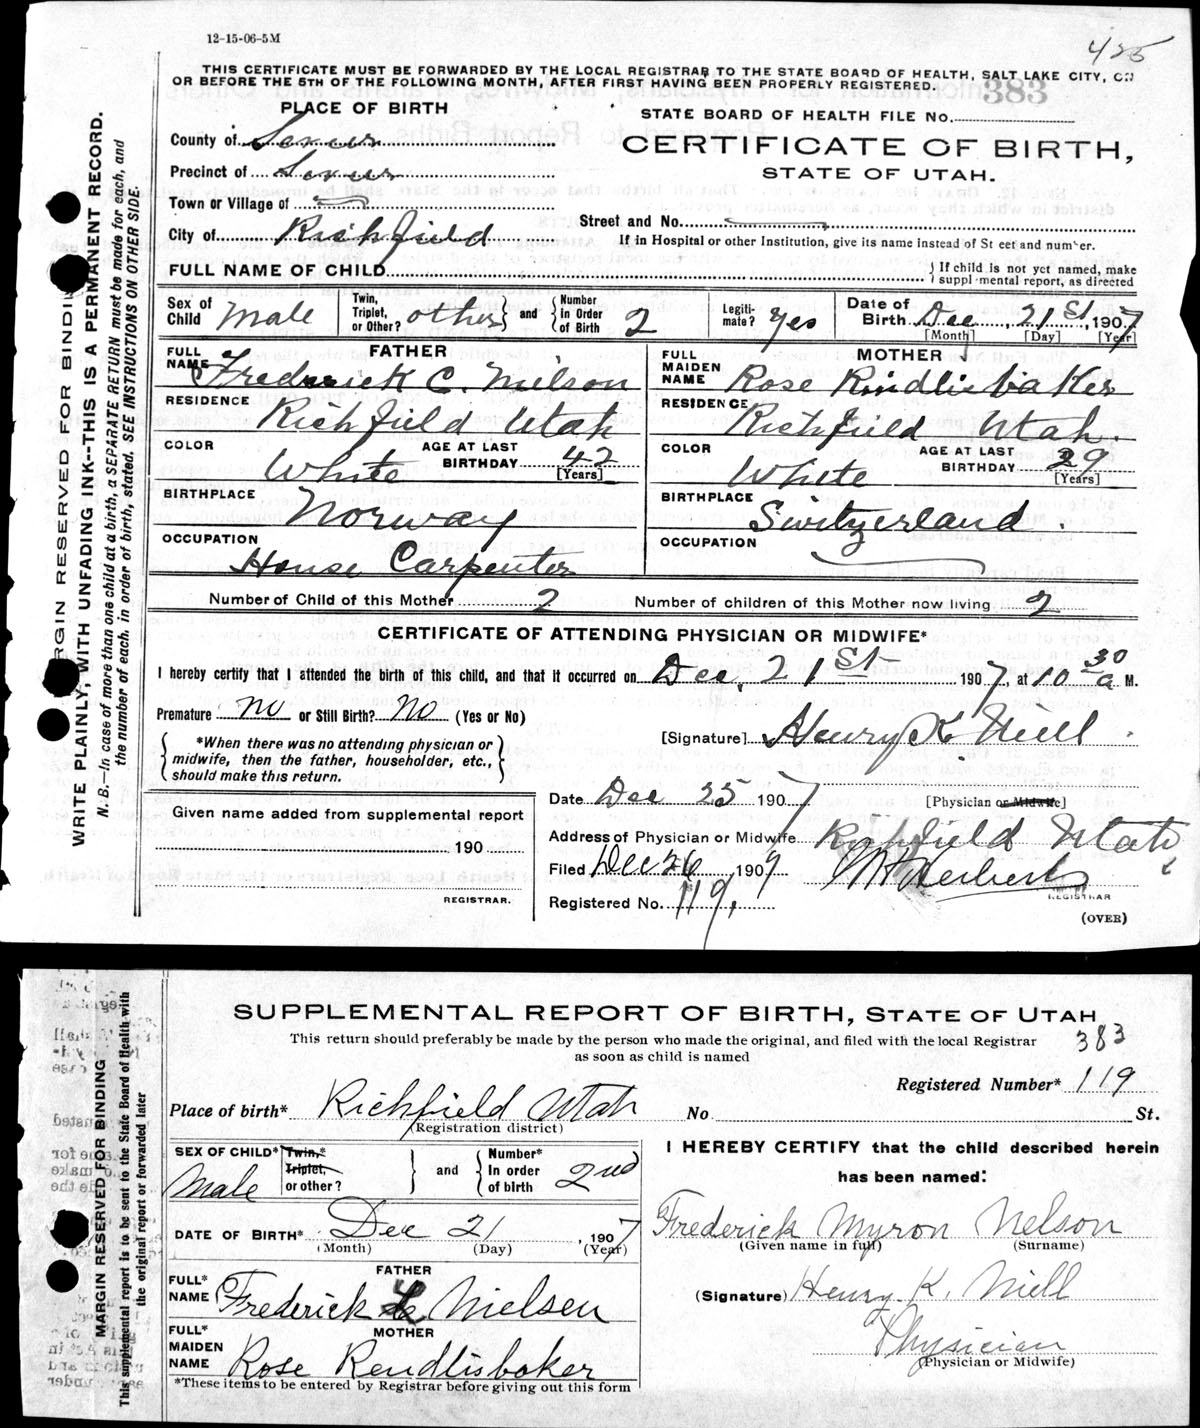 12-15-06-5M
425
THIS CERTIFICATE MUST BE FORWARDED BY THE LOCAL REGISTRAR TO THE STATE BOARD OF HEALTH, SALT LAKE CITY, ON
OR BEFORE THE 5TH OF THE FOLLOWING MONTH, AFTER FIRST HAVING BEEN PROPERLY REGISTERED.
383
PLACE OF BIRTH
STATE BOARD OF HEALTH FILE No.
County of Sevier
CERTIFICATE OF BIRTH,
Precinct of Sevier
STATE OF UTAH.
Town or Village of
Street and No.
City of Richfield
If in Hospital or other Institution, give its name instead of St eet and number.
FULL NAME OF CHILD
If child is not yet named, make suppl mental report, as directed
Sex of Child Male
Twin, Triplet, or Other? other and Number in Order of Birth 2
Legiti-mate? Yes
Date of Birth Dec, 21st, 1907
[Month] [Day] [Year]
FATHER
MOTHER
FULL NAME Frederick C. Nielson
FULL MAIDEN NAME Rose Rindlisbaker
RESIDENCE Richfield Utah
RESIDENCE Richfield Utah.
COLOR White
AGE AT LAST BIRTHDAY 42 [Years]
COLOR White
AGE AT LAST BIRTHDAY 29 [Years]
BIRTHPLACE Norway
BIRTHPLACE Switzerland.
OCCUPATION House Carpenter
OCCUPATION
Number of Child of this Mother 2
Number of children of this Mother now living 2
CERTIFICATE OF ATTENDING PHYSICIAN OR MIDWIFE*
I hereby certify that I attended the birth of this child, and that it occurred on Dec, 21st 1907, at 10 30 a M.
Premature? no or Still Birth? No (Yes or No)
[Signature] Henry K. Niell.
*When there was no attending physician or midwife, then the father, householder, etc., should make this return.
[Physician or Midwife]
Date Dec 25 1907
Given name added from supplemental report
190
REGISTRAR.
Address of Physician or Midwife Richfield Utah
Filed Dec 26, 1907
REGISTRAR
Registered No. 119.
(OVER)
MARGIN RESERVED FOR BINDING
WRITE PLAINLY, WITH UNFADING INK--THIS IS A PERMANENT RECORD.
N. B.—In case of more than one child at a birth, a SEPARATE RETURN must be made for each, and
the number of each, in order of birth, stated. SEE INSTRUCTIONS ON OTHER SIDE.
SUPPLEMENTAL REPORT OF BIRTH, STATE OF UTAH
This return should preferably be made by the person who made the original, and filed with the local Registrar
as soon as child is named
383
Registered Number* 119
Place of birth* Richfield Utah No St.
(Registration district)
SEX OF CHILD* Male
Twin,* Triplet, or other? and Number* In order of birth 2nd
I HEREBY CERTIFY that the child described herein
has been named:
DATE OF BIRTH* Dec 21, 1907
(Month) (Day) (Year)
Frederick Myron Nelson
(Given name in full) (Surname)
FATHER
FULL* NAME Frederick Nielsen
(Signature) Henry K. Niell
MOTHER
FULL* MAIDEN NAME Rose Rendlisbaker
Physician
(Physician or Midwife)
*These items to be entered by Registrar before giving out this form
MARGIN RESERVED FOR BINDING
This supplemental report is to be sent to the State Board of Health with
the original report or forwarded later